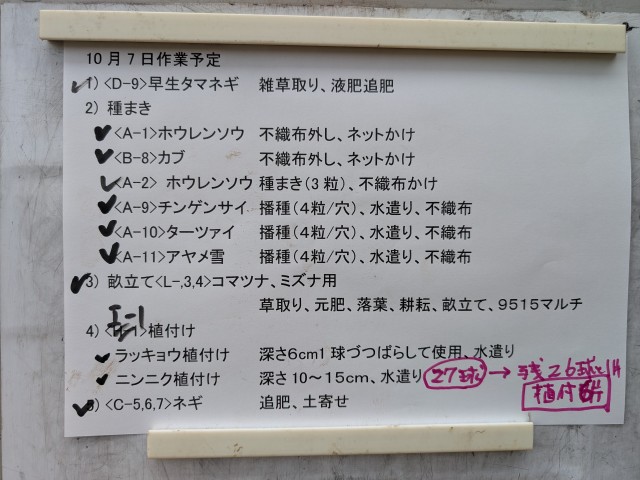 10月7日作業予定
1) <D-9>早生タマネギ 雑草取り、液肥追肥
2) 種まき
<A-1>ホウレンソウ 不織布外し、ネットかけ
<B-8>カブ 不織布外し、ネットかけ
<A-2> ホウレンソウ 種まき(3粒)、不織布かけ
<A-9>チンゲンサイ 播種(4粒/穴)、水遣り、不織布
<A-10>ターツァイ 播種(4粒/穴)、水遣り、不織布
<A-11>アヤメ雪 播種(4粒/穴)、水遣り、不織布
3) 畝立て<L-,3,4>コマツナ、ミズナ用
草取り、元肥、落葉、耕耘、畝立て、9515マルチ
I-1
4) 植付け
ラッキョウ植付け 深さ6cm1球づつばらして使用、水遣り
ニンニク植付け 深さ10～15cm、水遣り 27球 → 残26球
植付
5) <C-5,6,7>ネギ 追肥、土寄せ